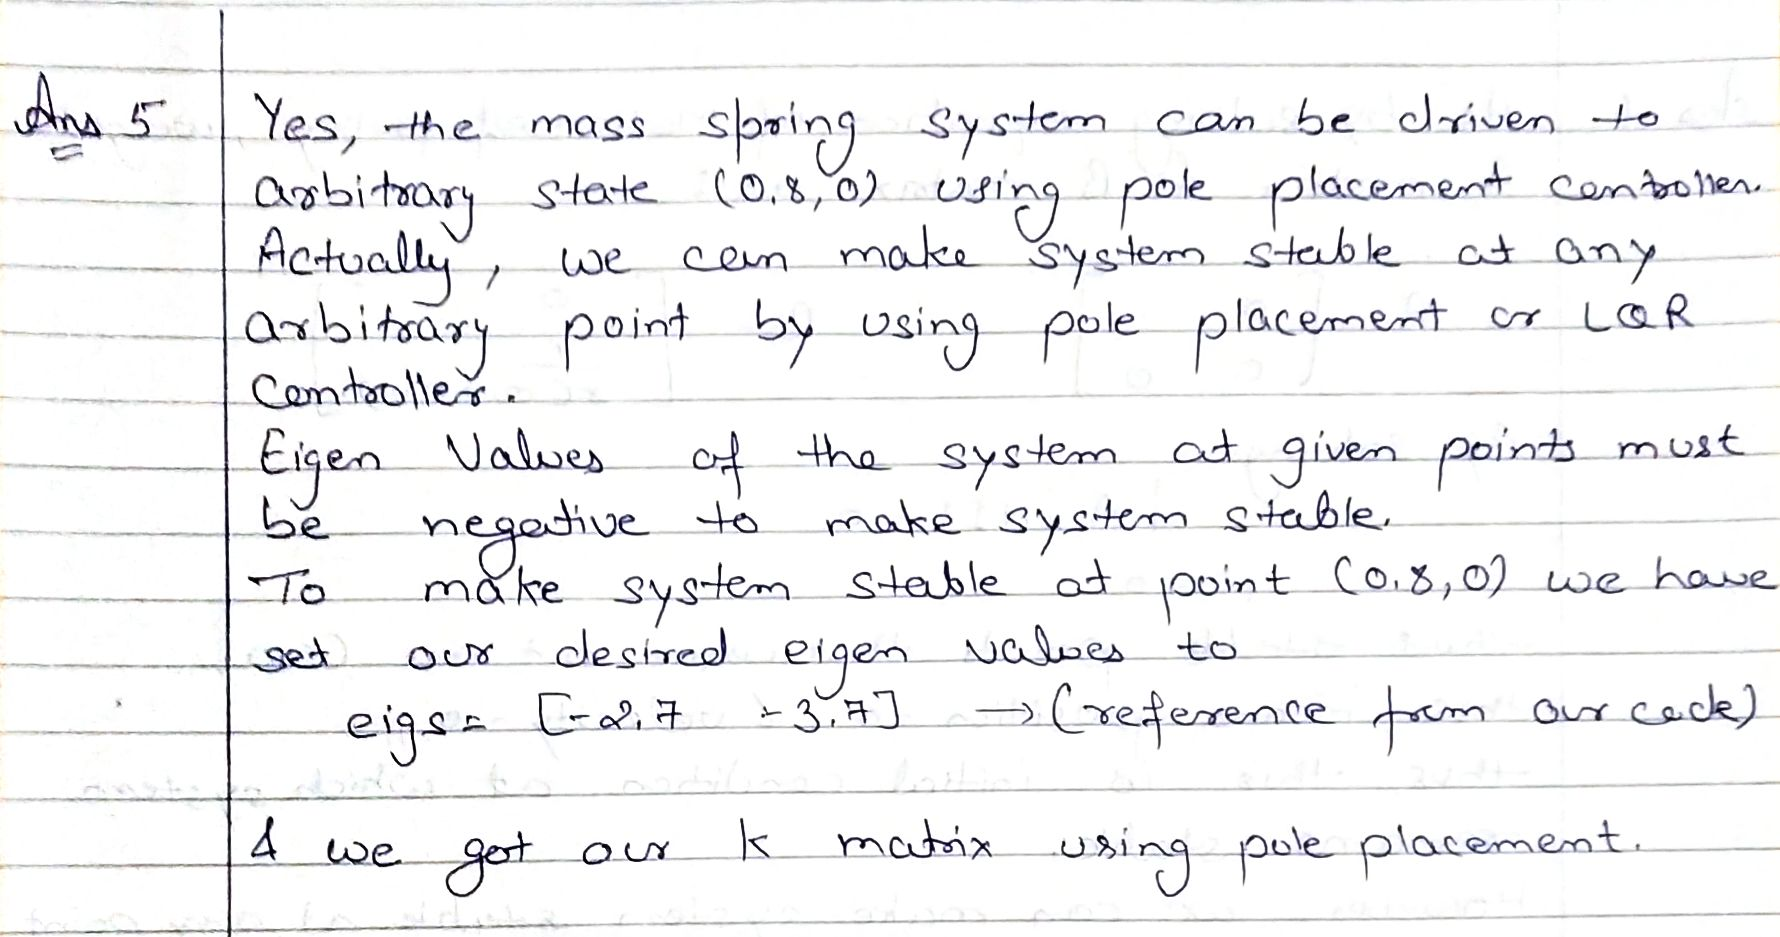 Ans 5 Yes, the mass spring system can be driven to
arbitrary state (0.8, 0) using pole placement controller.
Actually, we can make system stable at any
arbitrary point by using pole placement or LQR
Controller.
Eigen Values of the system at given points must
be negative to make system stable.
To make system stable at point (0.8, 0) we have
set our desired eigen values to
eigs = [-2.7 -3.7] → (reference from our code)
& we got our k matrix using pole placement.